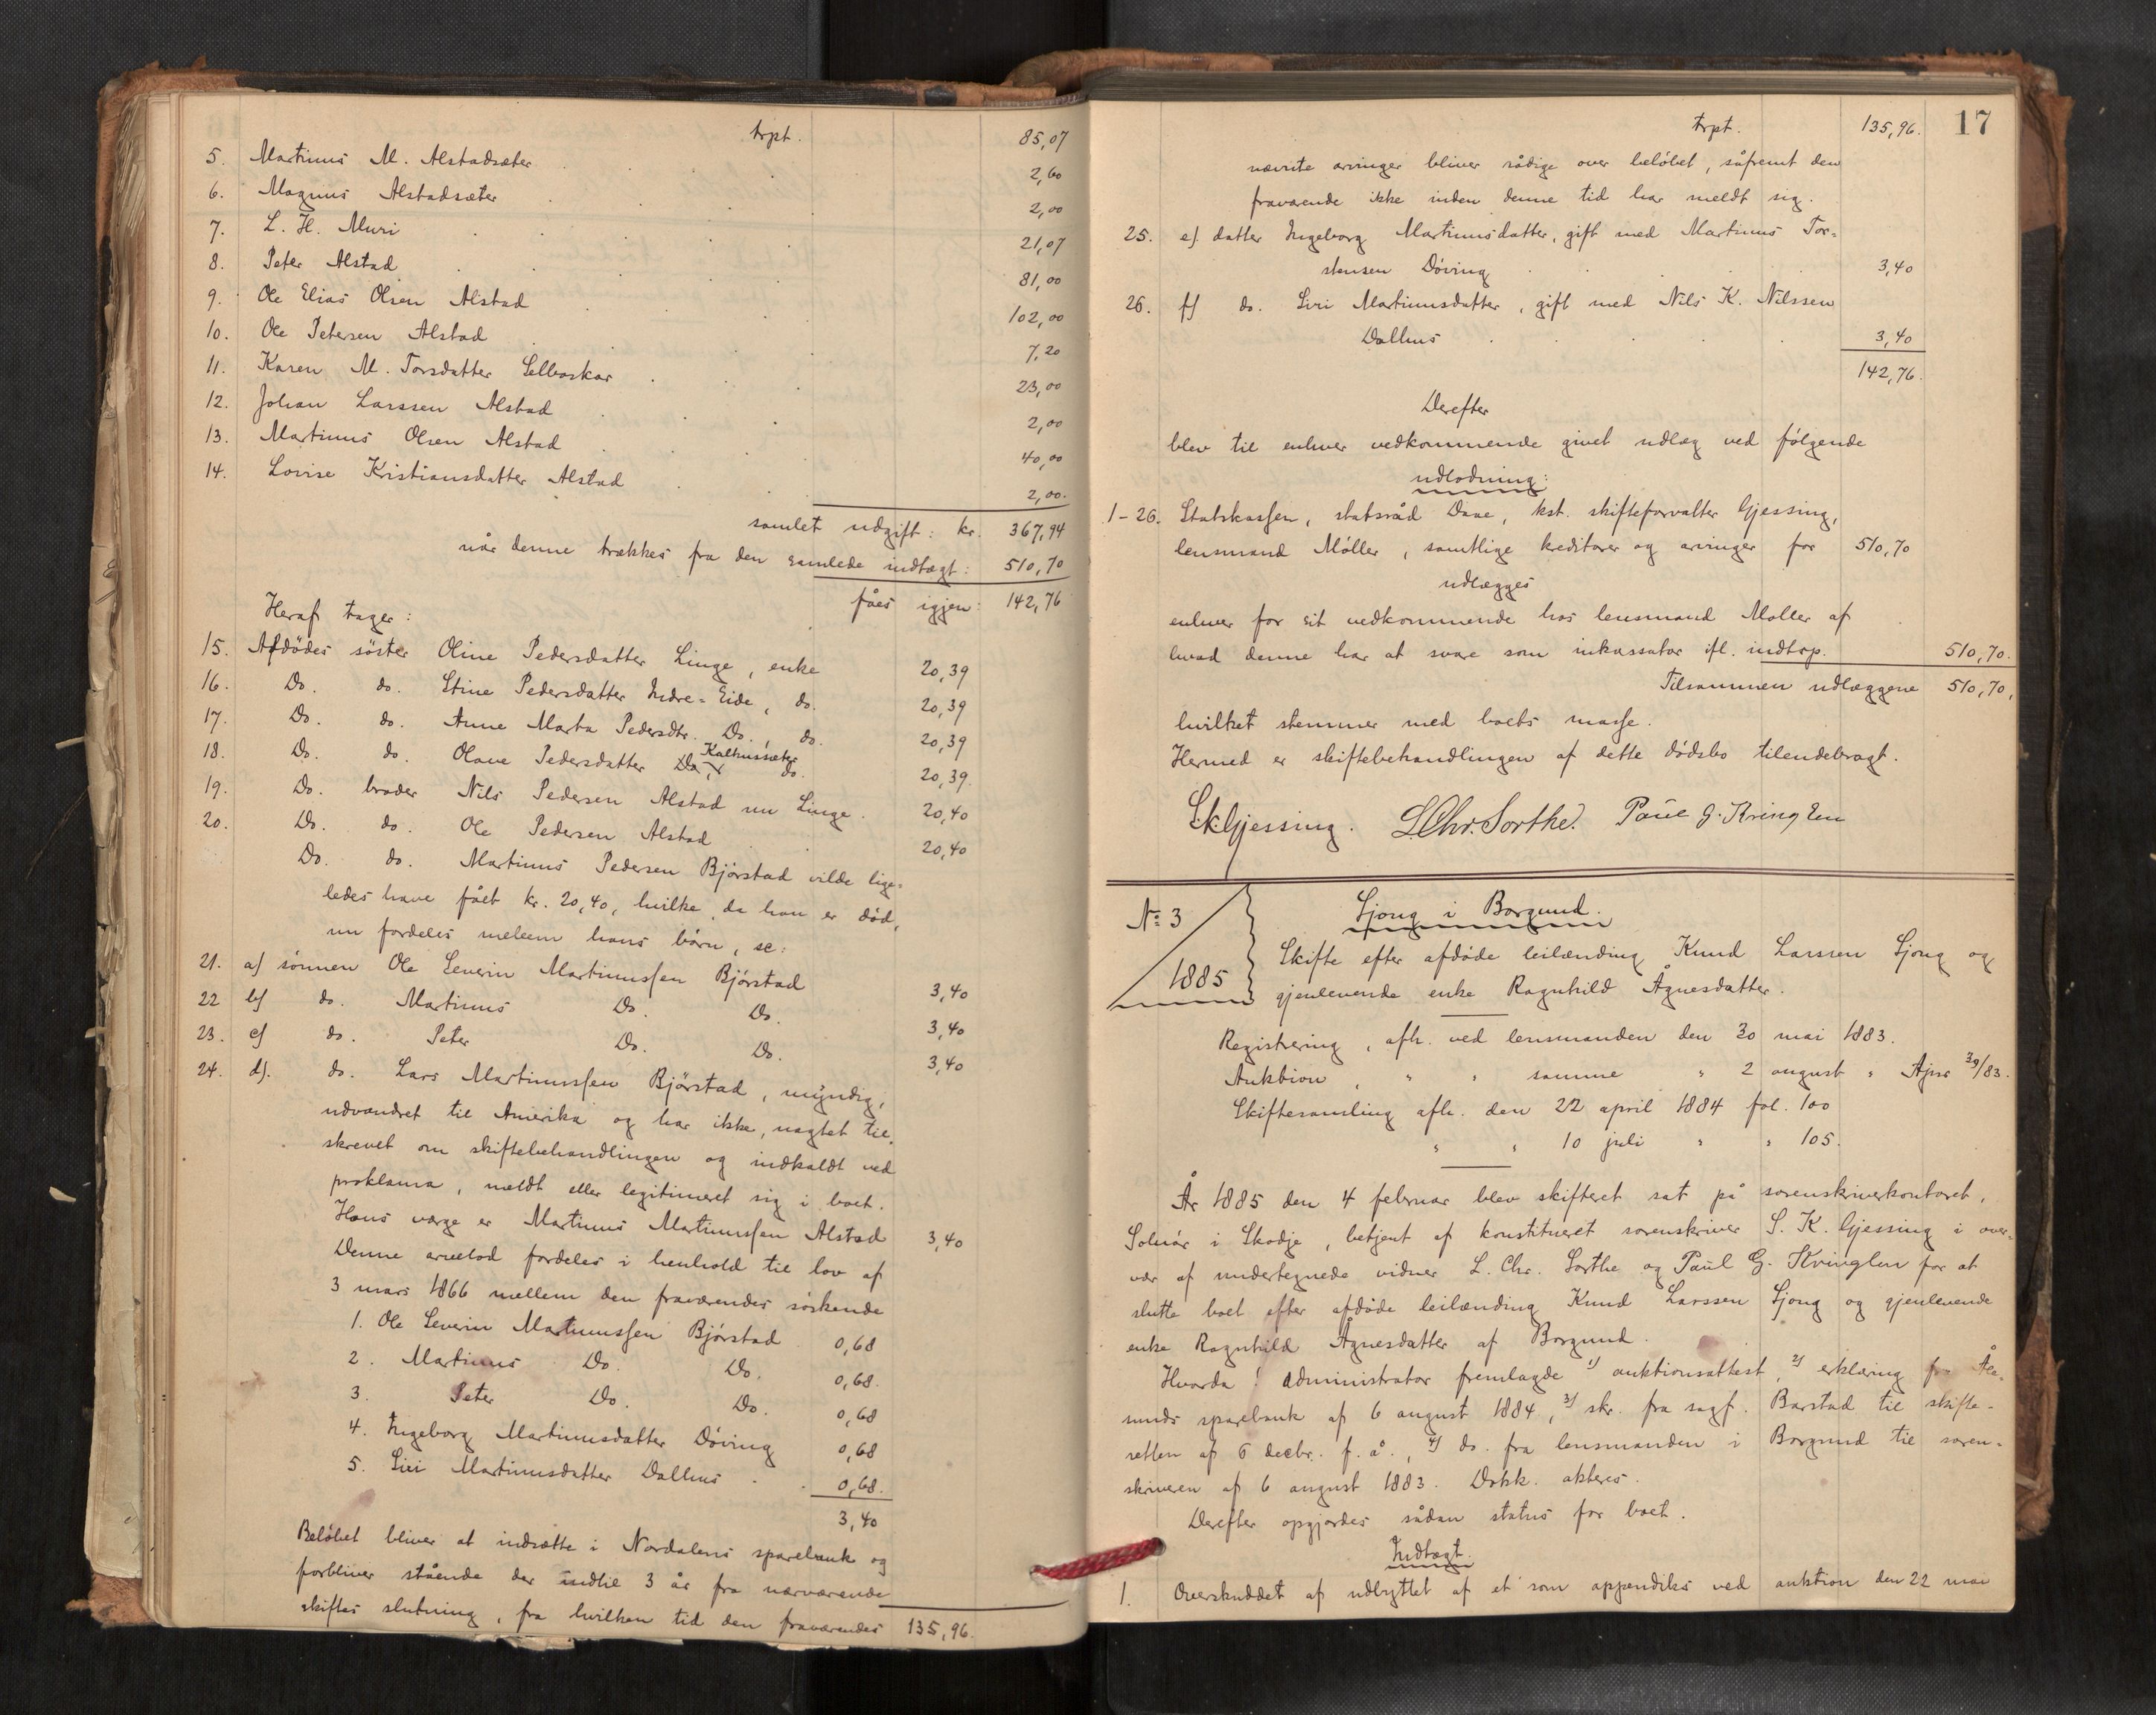 trpt. 85,07
5. Martinus M. Alstadsæter 2,60
6. Magnus Alstadsæter 2,00
7. L. H. Muri 21,07
8. Peter Alstad 81,00
9. Ole Elias Olsen Alstad 102,00
10. Ole Petersen Alstad 7,20
11. Karen M. Torsdatter Selboskar 23,00
12. Johan Larssen Alstad 2,00
13. Martinus Olsen Alstad 40,00
14. Lovise Kristiansdatter Alstad 2,00.
samlet udgift: kr. 367,94
når denne trækkes fra den samlede indtægt: 510,70
fåes igjen: 142,76
Heraf tager:
15. Afdödes söster Oline Pedersdatter Linge, enke 20,39
16. Do. do. Stine Pedersdatter Indre-Eide, do. 20,39
17. Do. do. Anne Marta Pedersdtr. Do., do. 20,39
18. Do. do. Olave Pedersdatter Do., Kalhussæter do. 20,39.
19. Do. broder Nils Pedersen Alstad nu Linge. 20,40
20. Do. do. Ole Pedersen Alstad 20,40
Do. do. Martinus Pedersen Bjørstad vilde lige-
ledes have fået kr. 20,40, hvilke, da han er död,
nu fordeles mellem hans börn, se:
21. a) sönnen Ole Severin Martinussen Bjørstad 3,40
22 b) do. Martinus Do. Do. 3,40
23. c) do. Peter Do. Do. 3,40
24. d). do. Lars Martinussen Bjørstad, myndig,
udvandret til Amerika og har ikke, uagtet til-
skrevet om skiftebehandlingen og indkaldt ved
proklama, meldt eller legitimeret sig i boet.
Hans værge er Martinus Martinussen Alstad 3,40
Denne arvelod fordeles i henhold til lov af
3 mars 1866 mellem den fraværendes söskende
1. Ole Severin Martinussen Bjørstad 0,68
2. Martinus Do. Do. 0,68.
3. Peter Do. Do. 0,68
4. Ingeborg Martinusdatter Döving 0,68
5. Siri Martinusdatter Dalhus 0,68.
3,40
Belöbet bliver at indsætte i Nordalens sparebank og
forbliver stående der indtil 3 år fra nærværende
skiftes slutning, fra hvilken tid den fraværendes 135,96.
trpt. 135,96. 17
nævnte arvinger bliver rådige over belöbet, såfremt den
fraværende ikke inden denne tid har meldt sig.
25. e) datter Ingeborg Martinusdatter, gift med Martinus Tor-
stensen Döving 3,40
26. f) do. Siri Martinusdatter, gift med Nils K. Nilssen
Dalhus 3,40
142,76.
Derefter
blev til enhver vedkommende givet udlæg ved fölgende
udlodning:
1-26. Statskassen, statsråd Daae, kst. skifteforvalter Gjessing,
lensmand Möller, samtlige kreditorer og arvinger for 510,70
udlægges
enhver for sit vedkommende hos lensmand Möller af
hvad denne har at svare som inkassator ifl. indtsp. 510,70.
Tilsammen udlæggene 510,70,
hvilket stemmer med boets masse.
Hermed er skiftebehandlingen af dette dödsbo tilendebragt.
S.K. Gjessing. L Chr. Sorthe. Paul G. Kringlen
No 3
1885
Gjong i Borgund.
Skifte efter afdöde leilænding Knud Larssen Gjong og
gjenlevende enke Ragnhild Ågnesdatter.
Registrering, afh. ved lensmanden den 30 mai 1883.
Auktion, " " samme " 2 august " Ajour 30/83.
Skiftesamling afh. den 22 april 1884 fol. 100
" " 10 juli " " 105.
År 1885 den 4 februar blev skifteret sat på sorenskriverkontoret,
Solnör i Skodje, betjent af konstitueret sorenskriver S. K. Gjessing i over-
vær af undertegnede vidner L. Chr. Sorthe og Paul G. Kringlen for at
slutte boet efter afdöde leilænding Knud Larssen Gjong og gjenlevende
enke Ragnhild Ågnesdatter af Borgund.
Hvorda: Administrator fremlagde 1) auktionsattest, 2) erklæring fra Åle-
sunds sparebank af 6 august 1884, 3) skr. fra sagf. Barstad til skifte-
retten af 6 decbr. f. å., 4) do. fra lensmanden i Borgund til soren-
skriveren af 6 august 1883. Dokk. akteres.
Derefter opgjordes sådan status for boet.
Indtægt.
1. Overskuddet af udbyttet af et som appendiks ved auktion den 22 mai